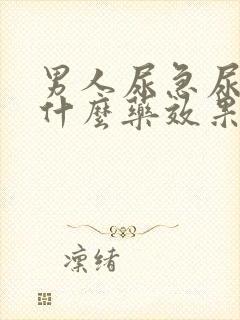 男人尿急尿
什麼藥效果
凛绪